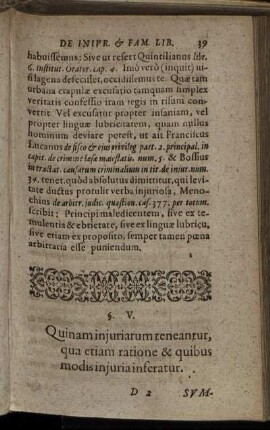 DE INIVR. & FAM. LIB. 39
habuissemus: Sive ut refert Quintilianus lib.
6. Institut. Orator. cap. 4. Imò verò (inquit) ni-
si lagena defecisset, occidissemus te. Quæ tam
urbana crapulæ excusatio tamquam simplex
veritatis confessio iram regis in risum con-
vertit. Vel excusatur propter insaniam, vel
propter linguæ lubricitatem, quam nullus
hominum deviare potest, ut ait Franciscus
Lucanus de fisco & eius privileg. part. 2. principal. in
capit. de crimine læsæ maiestatis. num. 5. & Bossius
in tractat. causarum criminalium in tit. de iniur. num.
34. tenet, quòd absolutus dimittitur, qui levi-
tate ductus protulit verba, injuriosa, Meno-
chius de arbitr. judic. quæstion. cas. 377. per totum,
scribit; Principi maledicentem, sive ex te-
mulentia & ebrietate, sive ex linguæ lubricu,
sive etiam ex proposito, semper tamen pœna
arbitraria esse puniendum.
§ V.
Quinam injuriarum teneantur,
qua etiam ratione & quibus
modis injuria inferatur.
D 2 SVM-